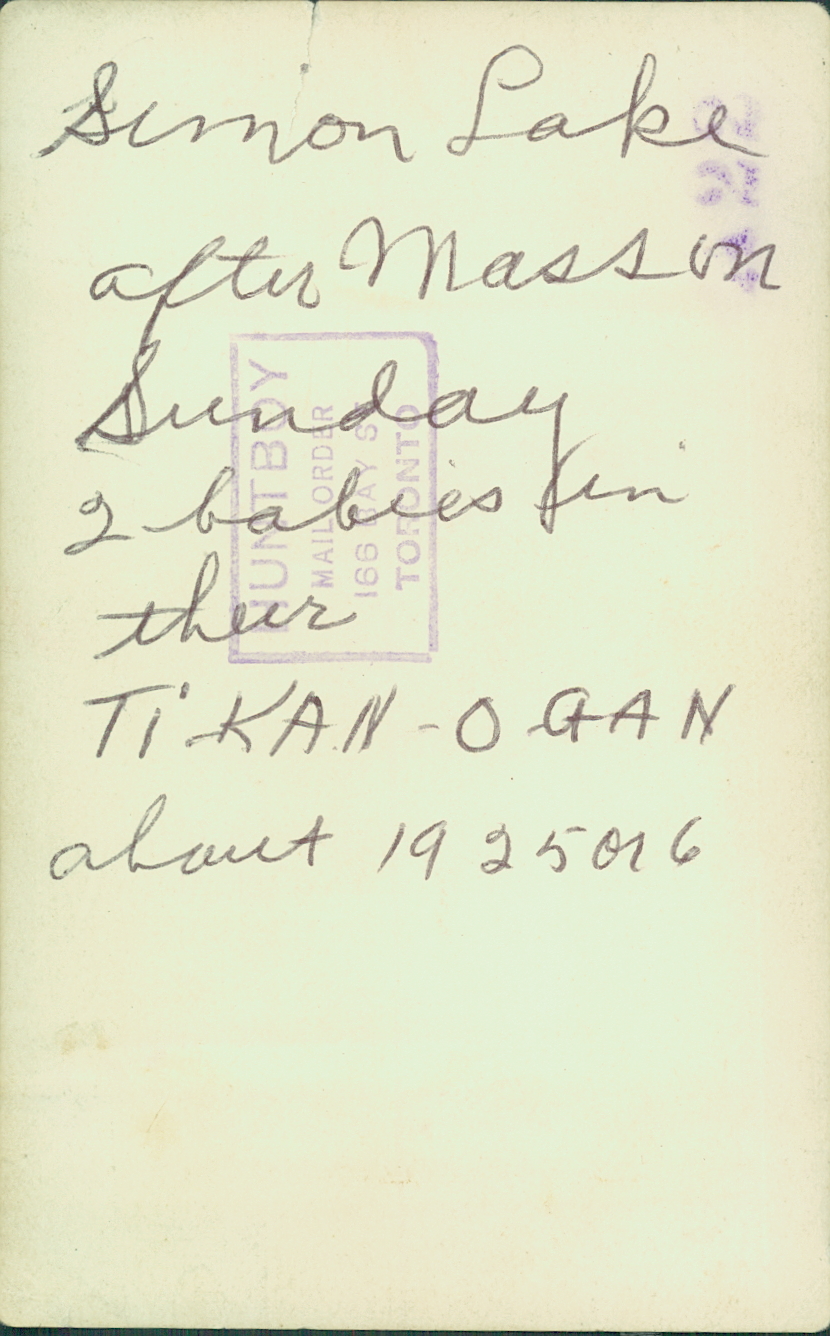 Simon Lake
after Mass on
Sunday
2 babies in
their
TI-KAN-OGAN
about 1925 or 6
HUNTBOY
MAIL ORDER
166 BAY ST
TORONTO